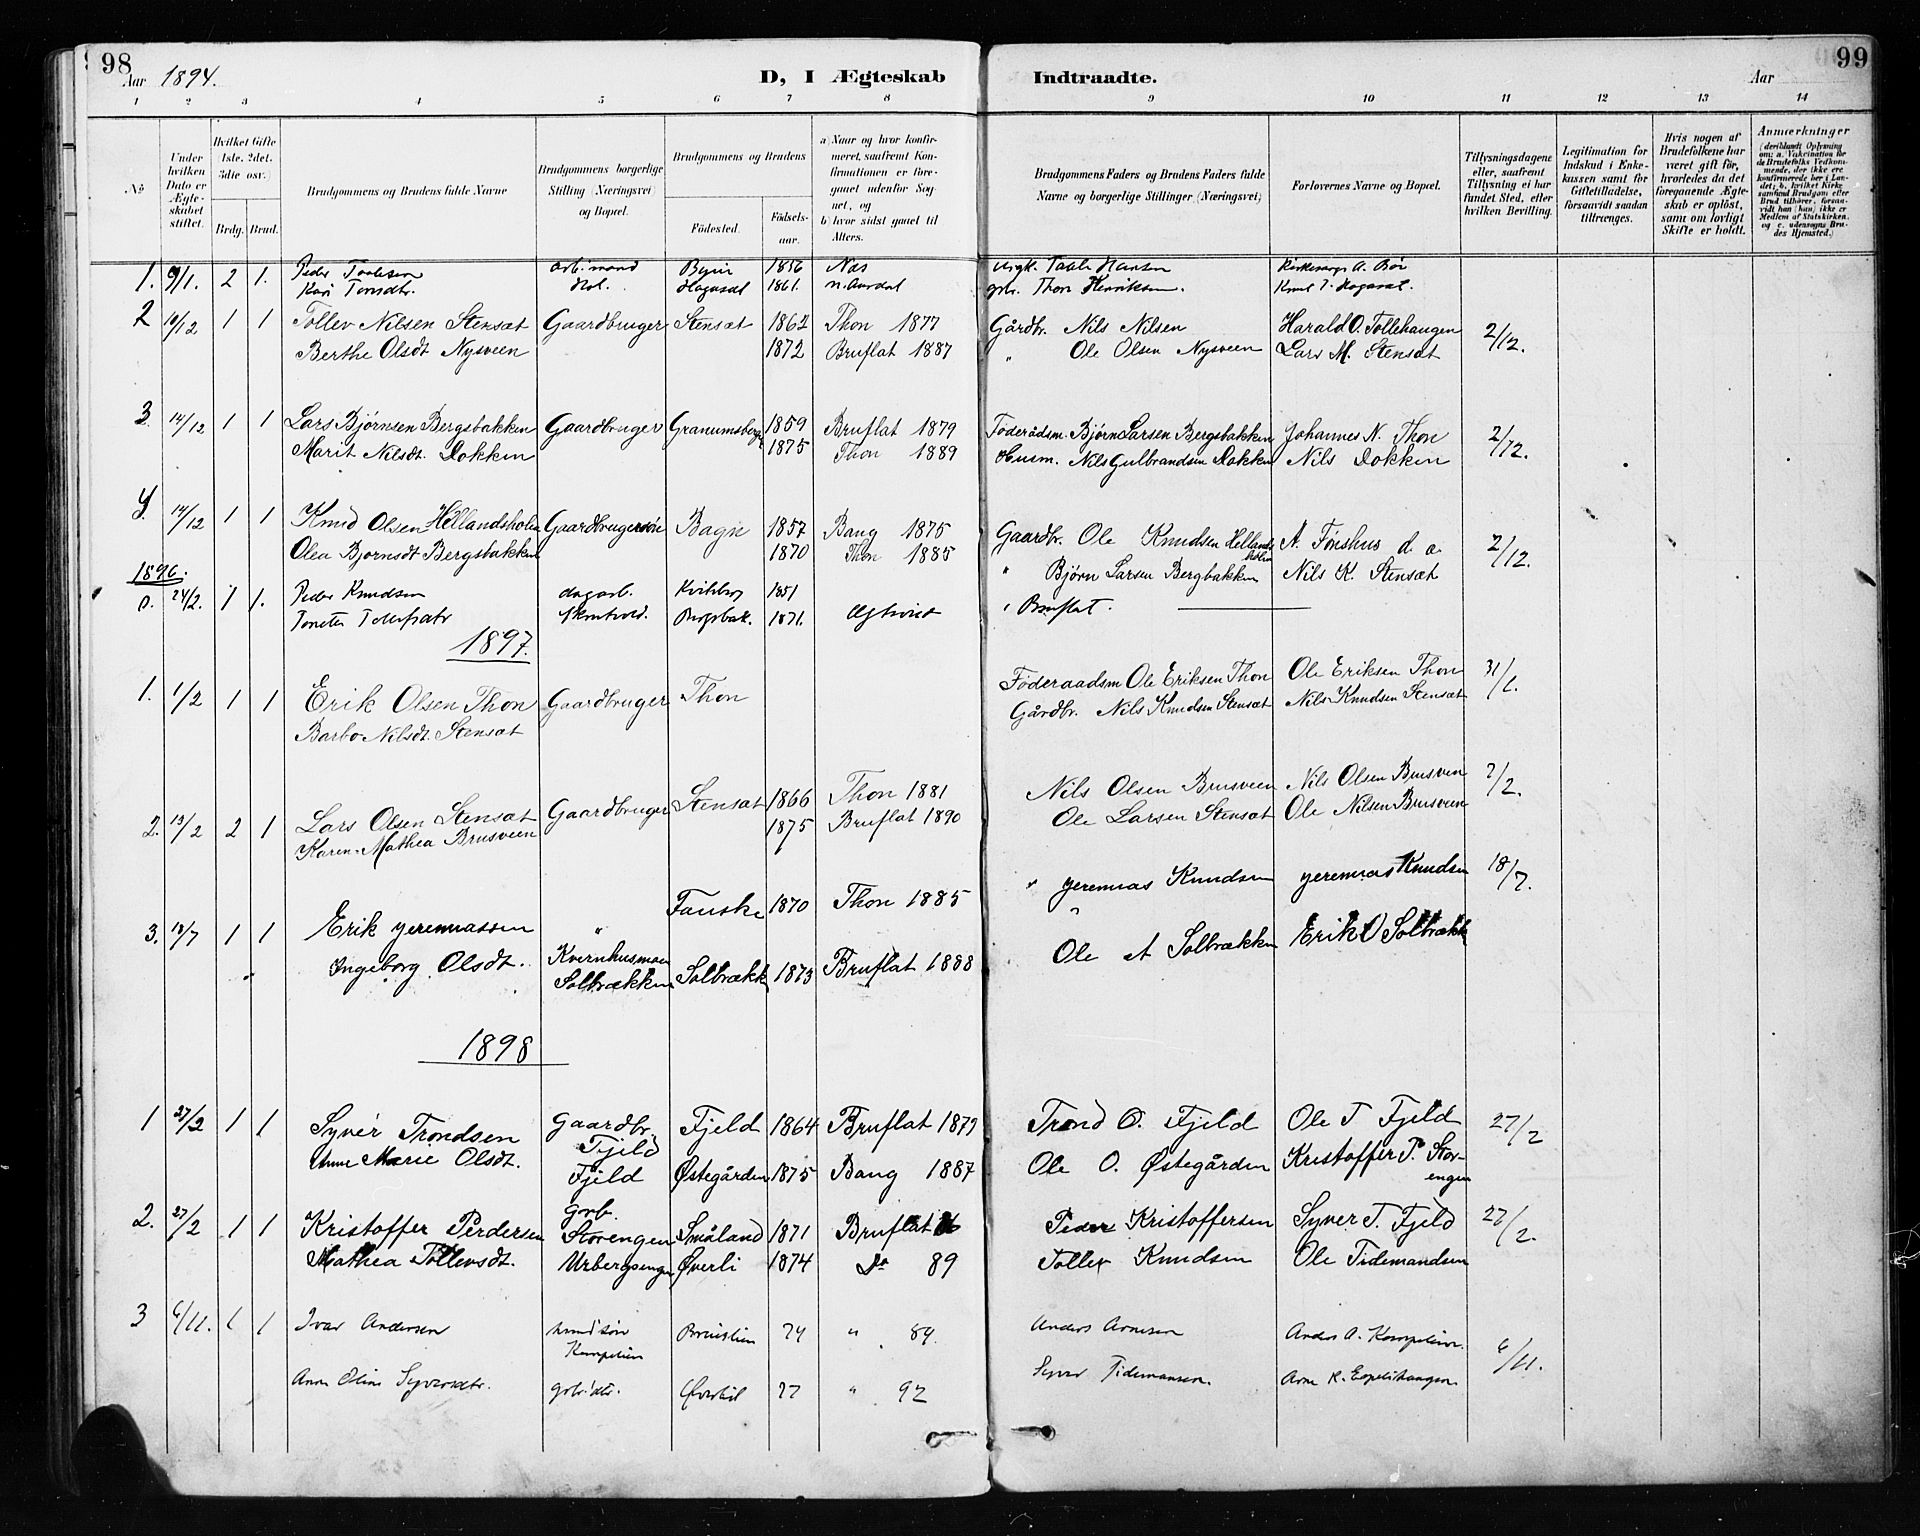 98
Aar 1894.
D, I Ægteskab Indtraadte.
Aar
99
1 2 3 4 5 6 7 8 9 10 11 12 13 14
No
Under hvilken Dato er Ægteskabet stiftet.
Hvilket Gifte 1ste. 2det. 3die osv.
Brdg. Brud.
Brudgommens og Brudens fulde Navne
Brudgommens borgerlige Stilling (Næringsvei) og Bopæl.
Brudgommens og Brudens
Fødested.
Fødselsaar.
a) Naar og hvor konfirmeret, saafremt Konfirmationen er foregaaet udenfor Sognet, og
b) hvor sidst gaaet til Alters.
Brudgommens Faders og Brudens Faders fulde Navne og borgerlige Stillinger (Næringsvei)
Forlovernes Navne og Bopæl.
Tillysningsdagene eller, saafremt Tillysning ei har fundet Sted, efter hvilken Bevilling.
Legitimation for Indskud i Enkekassen samt for Giftetilladelse, forsaavidt saadan tiltrænges.
Hvis nogen af Brudefolkene har været gift før, hvorledes da det foregaaende Ægteskab er opløst, samt om lovligt Skifte er holdt.
Anmærkninger
(deriblandt Oplysning om: a. Vakcination for de Brudefolks Vedkommende, der ikke ere konfirmerede her i Landet; b. hvilket Kirkesamfund Brudgom eller Brud tilhører, forsaavidt han (hun) ikke er Medlem af Statskirken, og c. udensogns Brudes Hjemsted.)
1. 9/1. 2 1. Peder arb.mand 1856 Næs Hansen
Kari 1861. n. Aurdal Thon Henriksen.
2 10/12 1 1 Tollev Nilsen Stensæt Gaardbruger Stensæt 1862 Thon 1877 Gårdbr. Nils Nilsen Harald O. Tollehaugen 2/12.
Berthe Olsdt Nysveen 1872 Bruflat 1887 " Ole Olsen Nysveen Lars M. Stensæt
3. 14/12 1 1 Lars Bjørnsen Bergsbakken Gaardbruger Granumsberg 1859 Bruflat 1879 Føderådsm. Bjørn Larsen Bergsbakken Johannes N. Thon 2/12.
Marit Nilsdt. Dokken 1875 Thon 1889 Husm. Nils Gulbrandsen Dokken Nils Dokken
4. 14/12 1 1 Knud Olsen Hellandsholen Gaardbrugersøn Bagn 1857 Bang 1875 Gaardbr. Ole Knudsen Hellandsholm A. Fønshus d. a. 2/12.
Olea Bjørnsdt Bergsbakken 1870 Thon 1885 " Bjørn Larsen Bergbakken Nils K. Stensæt
1896.
24/2. 1 1. Peder Knudsen dagarb. 1851 Bruflat.
1871.
1897.
1. 1/2 1 1 Erik Olsen Thon Gaardbruger Thon Føderaadsm Ole Eriksen Thon Ole Eriksen Thon 31/1.
Barbo Nilsdt. Stensæt Gårdbr. Nils Knudsen Stensæt Nils Knudsen Stensæt
2. 13/2 2 1 Lars Olsen Stensæt Gaardbruger Stensæt 1866 Thon 1881 Nils Olsen Brusveen Nils Olsen Brusveen 2/2.
Karen Mathea Brusveen 1875 Bruflat 1890 Ole Larsen Stensæt Ole Nilsen Brusveen
3. 18/7 1 1 Erik yeremiassen " Fauske 1870 Thon 1885 " yeremias Knudsen yeremias Knudsen 18/7.
Ingeborg Olsdt. Kvernhusmoen Solbrækken Solbrækk 1873 Bruflat 1888 Ole A Solbrækken Erik O Solbrækk
1898
1 27/2 1 1 Syver Trondsen Gaardbr. Fjeld Fjeld 1864 Bruflat 1879 Trond O. Fjeld Ole T Fjeld 27/2
Anne Marie Olsdt. Fjeld Østegården 1875 Bang 1887 Ole O. Østegården Kristoffer P. Storengen
2. 27/2 1 1 Kristoffer Perdersen Grb. Storengen Småland 1871 Bruflat 86 Peder Kristoffersen Syver T. Fjeld 27/2.
Mathea Tollevsdt. Urbergsengen Øverli 1874 Do 89 Tollev Knudsen Ole Tidemandsen
3 6/11. 1 1 Ivar Andersen 74 " 89. Anders Arnesen Anders A. 6/11.
Anne Oline Syversdtr. grb.dtr. 77 " 92 Syver Tidemansen. Arne K.